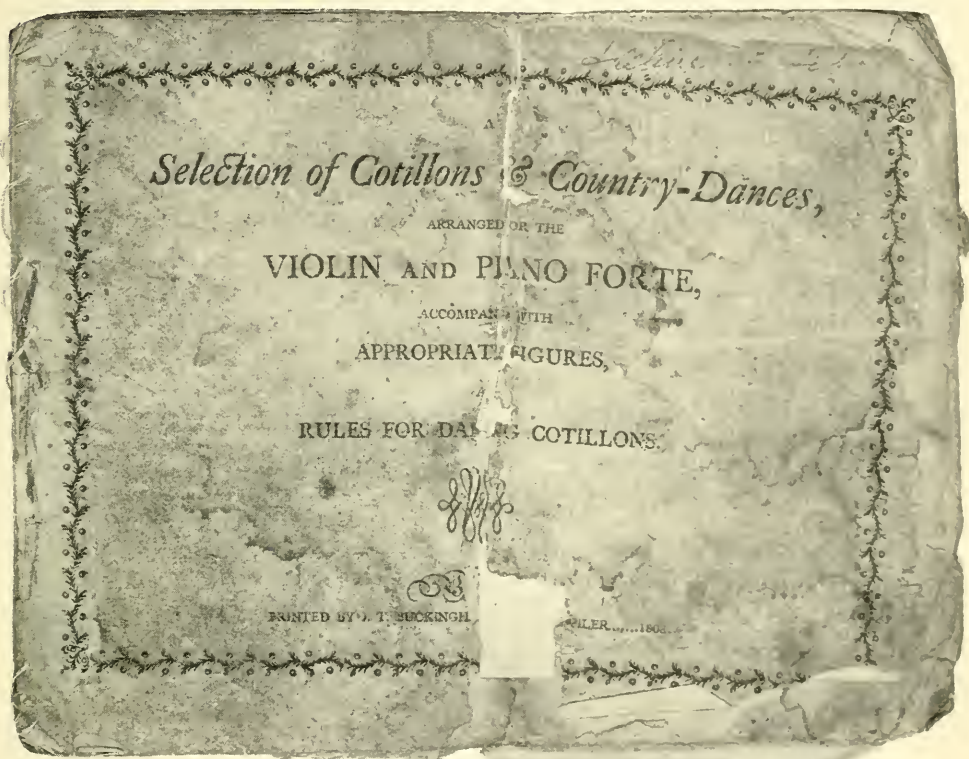 A
Selection of Cotillons & Country-Dances,
ARRANGED OR THE
VIOLIN AND PIANO FORTE,
ACCOMPAN WITH
APPROPRIAT FIGURES,
RULES FOR DA G COTILLONS.
PRINTED BY J. T. BUCKINGH PILER......1808.